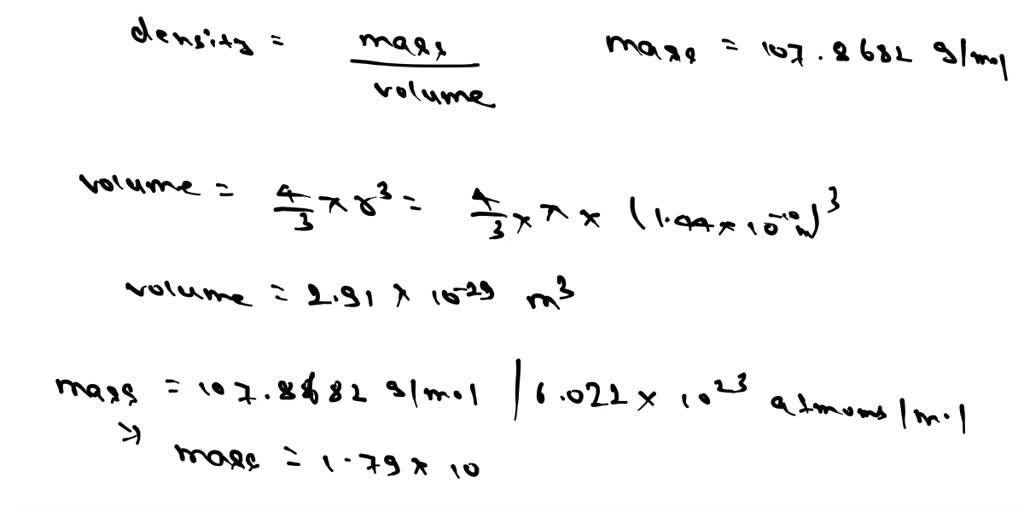 density = mass / volume    mass = 107.8682 g/mol
volume = 4/3 π r³ = 4/3 × π × (1.44 × 10⁻¹⁰ m)³
volume = 2.91 × 10⁻²⁹ m³
mass = 107.8682 g/mol / 6.022 × 10²³ atmoms/mol
⇒ mass = 1.79 × 10